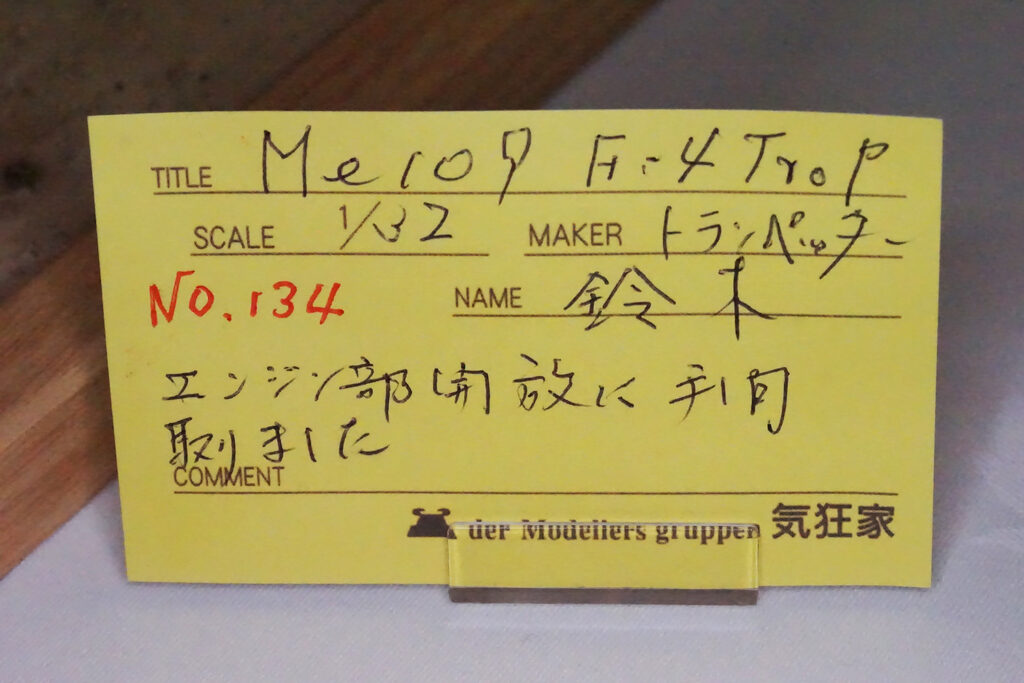 TITLE Me109 F-4 Trop
SCALE 1/32 MAKER トランペッター
No.134 NAME 鈴木
エンジン部開放に手間
取りました
COMMENT
der Modellers gruppen 気狂家